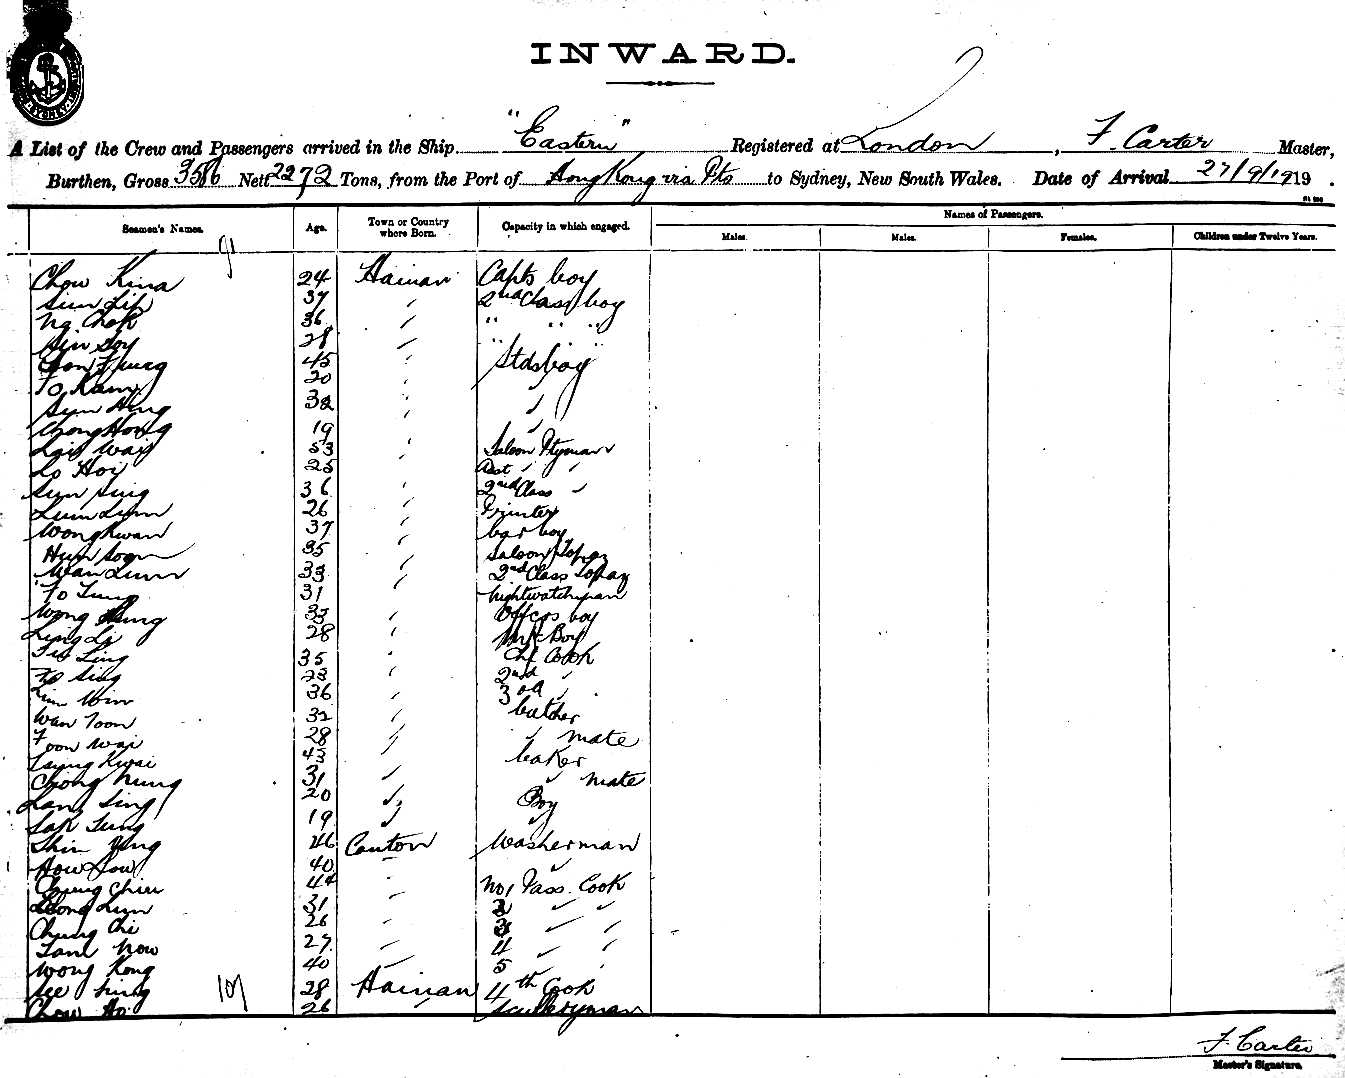 INWARD.
A List of the Crew and Passengers arrived in the Ship "Eastern" Registered at London, F. Carter Master,
Burthen, Gross 3586 Nett 2272 Tons, from the Port of Hong Kong via Pts to Sydney, New South Wales. Date of Arrival 27/9/1919.
Names of Passengers.
Seamen's Names. Age. Town or Country where Born. Capacity in which engaged. Males. Males. Females. Children under Twelve Years.
Chow Kina 24 Hainan Capts boy
Sum Lip 37 " 2nd Class boy
Ng Chok 36 " " " "
Sin Soy 28 " " "
45 " Stds boy
To Kam 20 "
Sum Hing 38 "
Chong Hong 19 "
Wai 53 " Saloon Ptyman
Lo Hoi 25 " Asst " "
Sum Sing 36 " 2nd Class "
Lum Lum 26 " Printer
Wong Kwan 37 " bar boy
Hum 35 " Saloon Topaz
Wan Lum 33 " 2nd Class Topaz
To Tung 31 " nightwatchman
Wong 33 " Offcrs boy
Ling Li 28 " Boy
Ling 35 " Chf Cook
Sing 23 " 2nd "
Lim Wim 36 " 3rd "
Wan Toon 32 " butcher
Foon Wai 28 " " mate
Tsung Kwai 43 " baker
Chong Nung 31 " " mate
Lam Sing 20 " Boy
Sak Tung 19 " "
Shin Yung 46 Canton Washerman
How Low 40 " "
Chung Chiu 44 " No 1 Pass. Cook
Leong Lum 31 " 2 " "
Chung Chi 26 " 3 " "
Tam Now 27 " 4 " "
Wong Kong 40 " 5 " "
Lee Hing 28 Hainan 4th Cook
Chow Ho 26 " Scullery man
107
F. Carter
Master's Signature.